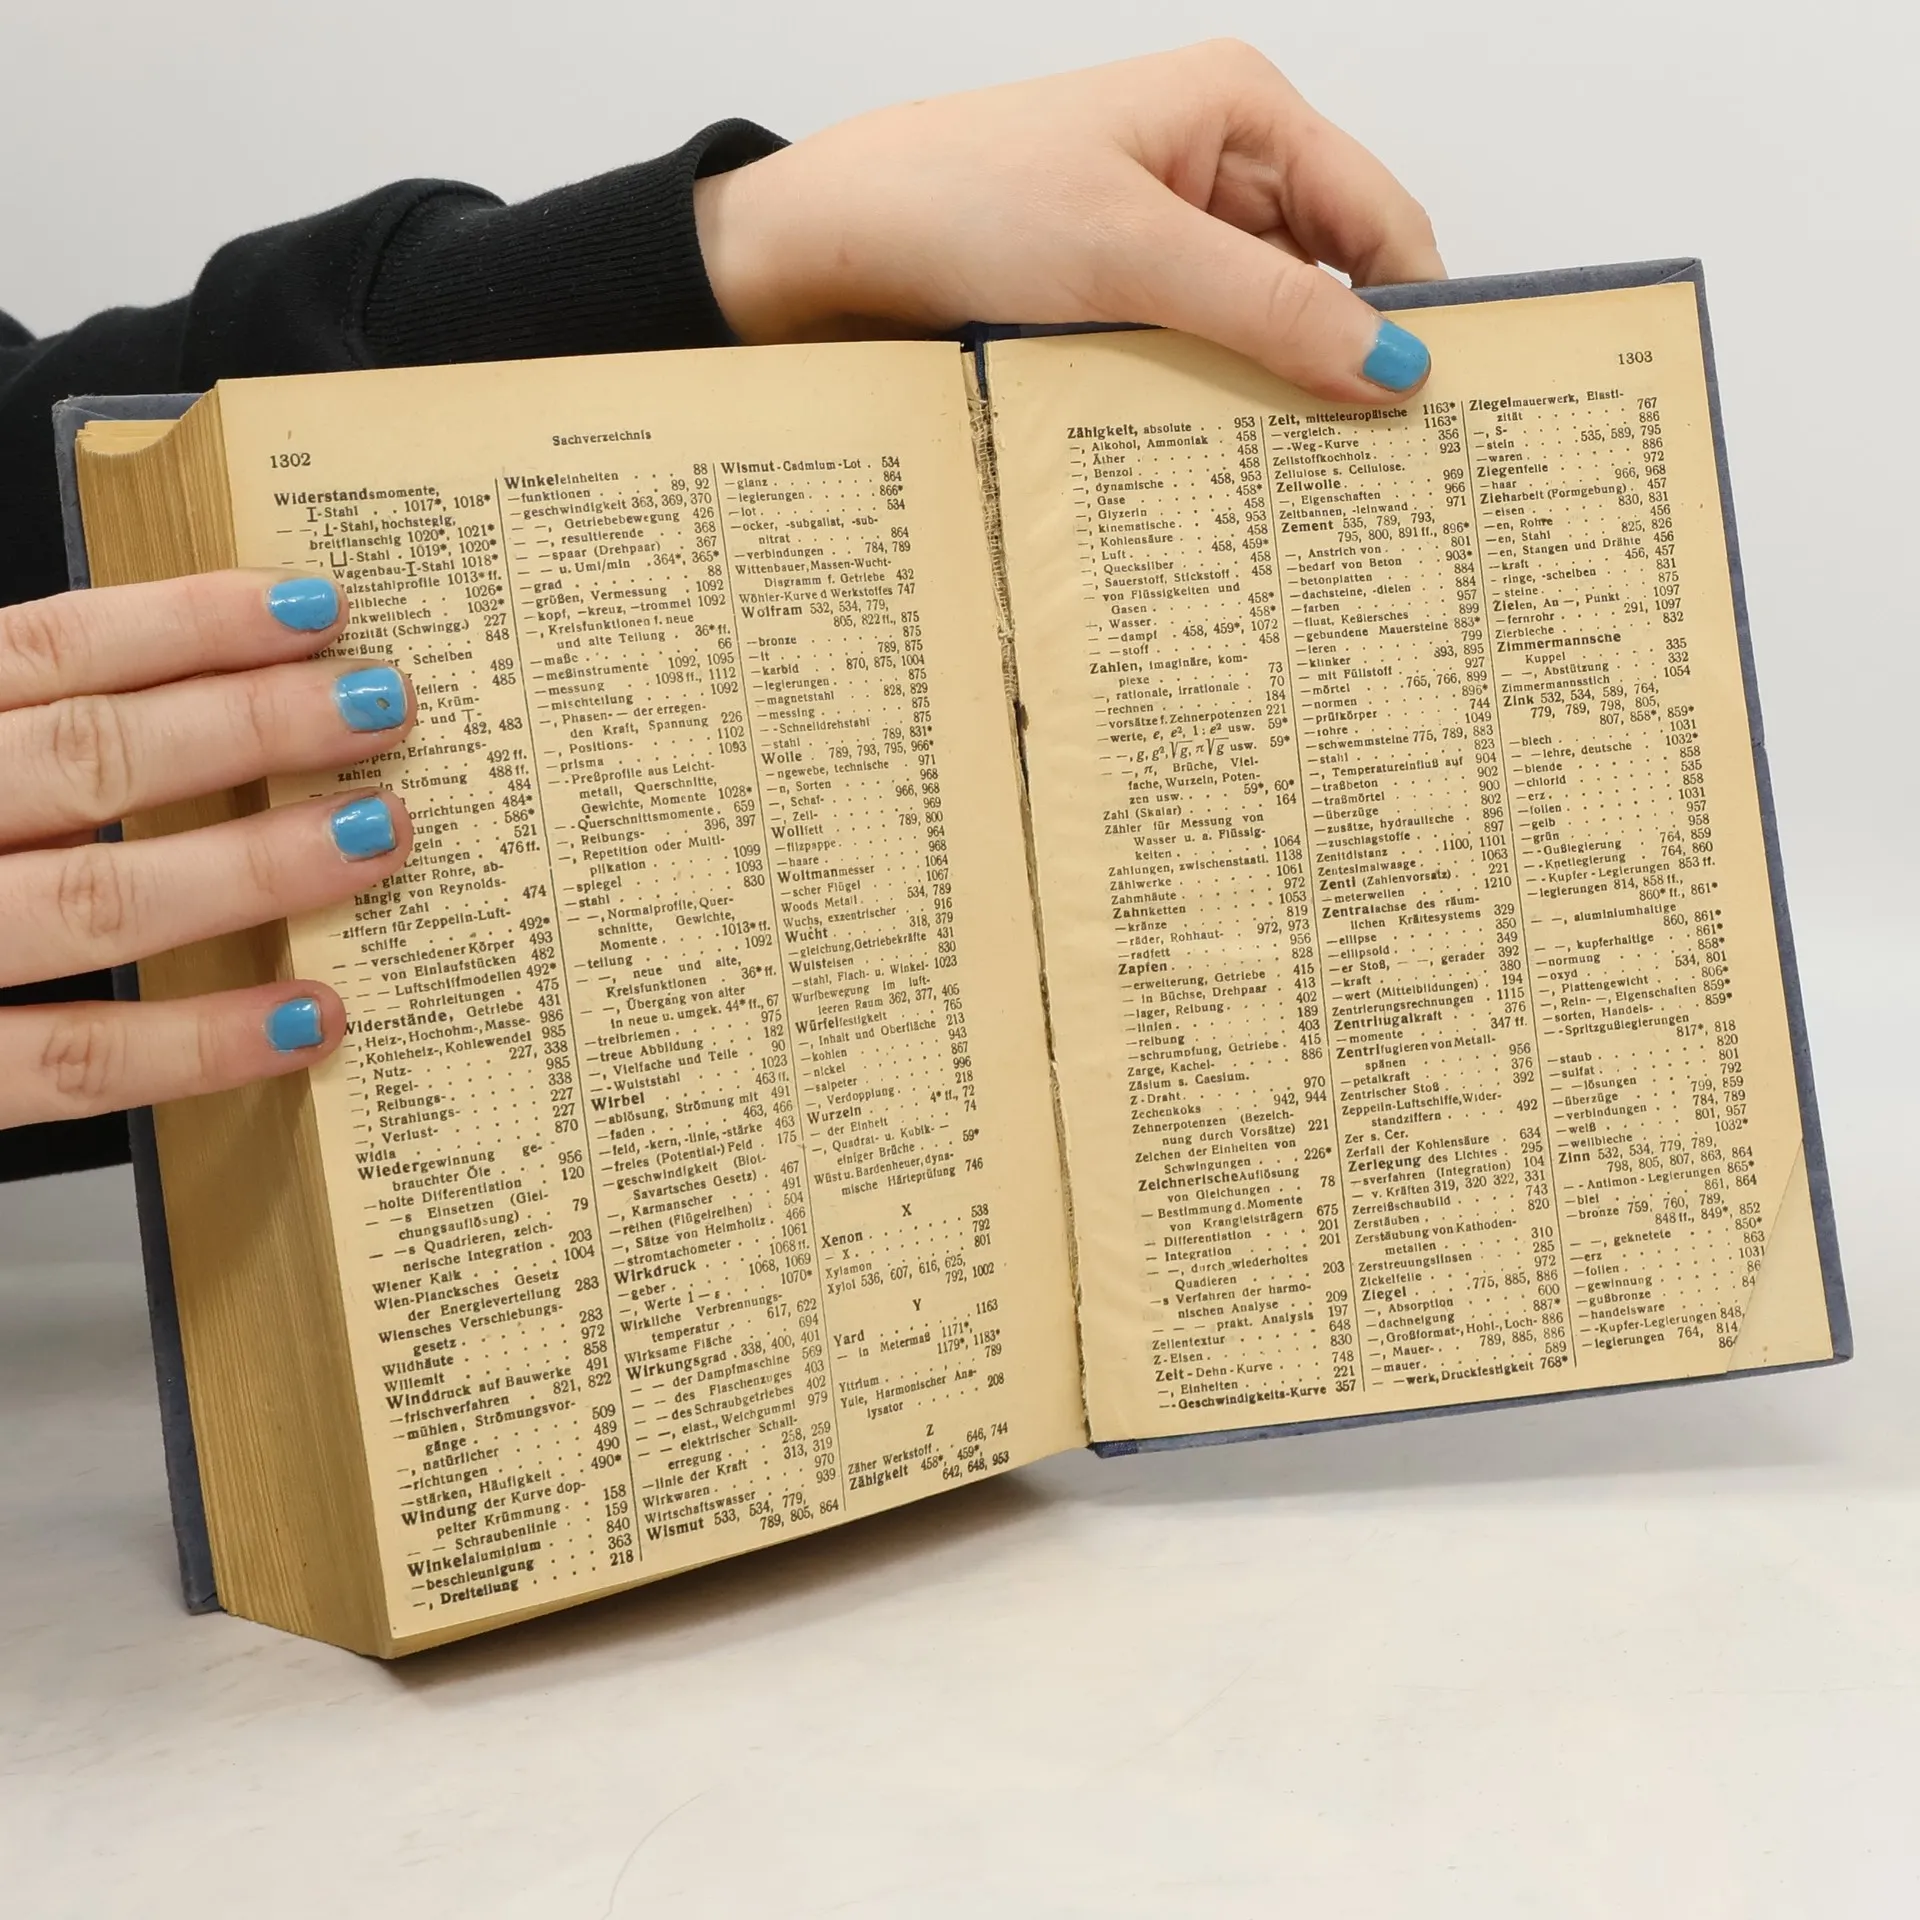 1302
Sachverzeichnis
Widerstandsmomente,
I-Stahl . . 1017*, 1018*
— —, I-Stahl, hochstegig,
breitflanschig 1020*, 1021*
— —, ⊔-Stahl . 1019*, 1020*
Wagenbau-I-Stahl 1018*
alzstahlprofile 1013* ff.
ellbleche . . 1026*
nkwellblech . 1032*
prozität (Schwingg.) 227
schweißung . . . 848
er Scheiben
489
feilern . 485
en, Krüm-
- und T-
482, 483
örpern, Erfahrungs-
zahlen . . . . . 492 ff.
in Strömung 488 ff.
484
orrichtungen 484*
ungen . . . 586*
geln . . . . 521
Leitungen . 476 ff.
glatter Rohre, ab-
hängig von Reynolds-
scher Zahl . . . . 474
—ziffern für Zeppelin-Luft-
schiffe . . . . . 492*
— — verschiedener Körper 493
— — von Einlaufstücken 482
— — — Luftschiffmodellen 492*
— — — Rohrleitungen . 475
Widerstände, Getriebe 431
—, Heiz-, Hochohm-, Masse- 986
—, Kohleheiz-, Kohlewendel 985
—, Nutz- . . . . 227, 338
—, Regel- . . . . . 985
—, Reibungs- . . . . 338
—, Strahlungs- . . . . 227
—, Verlust- . . . . . 227
Widia . . . . . . . 870
Wiedergewinnung ge-
brauchter Öle . . . 956
—holte Differentiation . 120
— —s Einsetzen (Glei-
chungsauflösung) . . 79
— —s Quadrieren, zeich-
nerische Integration . 203
Wiener Kalk . . . . . 1004
Wien-Plancksches Gesetz
der Energieverteilung 283
Wiensches Verschiebungs-
gesetz . . . . . . 283
Wildhäute . . . . . . 972
Willemit . . . . . . . 858
Winddruck auf Bauwerke 491
—frischverfahren . 821, 822
—mühlen, Strömungsvor-
gänge . . . . . . 509
—, natürlicher . . . . 489
—richtungen . . . . . 490
—stärken, Häufigkeit . . 490*
Windung der Kurve dop-
pelter Krümmung . . 158
— — Schraubenlinie . . 159
Winkelaluminium . . . 840
—beschleunigung . . . 363
—, Dreiteilung . . . . 218
Winkeleinheiten . . . 88
—funktionen . . . . 89, 92
—geschwindigkeit 363, 369, 370
— —, Getriebebewegung 426
— —, resultierende . . 368
— —spaar (Drehpaar) . 367
— — u. Uml/min . 364*, 365*
—grad . . . . . . . 88
—größen, Vermessung . 1092
—kopf, —kreuz, —trommel 1092
—, Kreisfunktionen f. neue
und alte Teilung . 36* ff.
—maße . . . . . . . 66
—meßinstrumente 1092, 1095
—messung . . . 1098 ff., 1112
—mischteilung . . . . 1092
—, Phasen- — der erregen-
den Kraft, Spannung 226
—, Positions- . . . . 1102
—prisma . . . . . . 1093
—-Preßprofile aus Leicht-
metall, Querschnitte,
Gewichte, Momente 1028*
—-Querschnittsmomente . 659
—, Reibungs- . . . 396, 397
—, Repetition oder Multi-
plikation . . . . . 1099
—spiegel . . . . . . 1093
—stahl . . . . . . . 830
— —, Normalprofile, Quer-
schnitte, Gewichte,
Momente . . . . 1013* ff.
—teilung . . . . . . 1092
— —, neue und alte,
Kreisfunktionen . 36* ff.
— —, Übergang von alter
in neue u. umgek. 44* ff., 67
—treibriemen . . . . . 975
—treue Abbildung . . . 182
—, Vielfache und Teile . 90
—-Wulststahl . . . . 1023
Wirbel . . . . . . 463 ff.
—ablösung, Strömung mit 491
—faden . . . . . 463, 466
—feld, -kern, -linie, -stärke 463
—freies (Potential-) Feld . 175
—geschwindigkeit (Biot-
Savartsches Gesetz) . 467
—, Karmanscher . . . . 491
—reihen (Flügelreihen) . 504
—, Sätze von Helmholtz . 466
—stromtachometer . . . 1061
Wirkdruck . . . . 1068 ff.
—geber . . . . 1068, 1069
—, Werte 1 — ε . . . . 1070*
Wirkliche Verbrennungs-
temperatur . . 617, 622
Wirksame Fläche . . . 694
Wirkungsgrad . 338, 400, 401
— — der Dampfmaschine 569
— — des Flaschenzuges 403
— — des Schraubgetriebes 402
— —, elast., Weichgummi 979
— — elektrischer Schall-
erregung . . . 258, 259
—linie der Kraft . 313, 319
Wirkwaren . . . . . . 970
Wirtschaftswasser . . . 939
Wismut 533, 534, 779,
789, 805, 864
Wismut-Cadmium-Lot . 534
—glanz . . . . . . . 864
—legierungen . . . . . 866*
—lot . . . . . . . . 534
—ocker, -subgallat, -sub-
nitrat . . . . . . 864
—verbindungen . . 784, 789
Wittenbauer, Massen-Wucht-
Diagramm f. Getriebe 432
Wöhler-Kurve d Werkstoffes 747
Wolfram 532, 534, 779,
805, 822 ff., 875
—bronze . . . . . . 875
—it . . . . . . 789, 875
—karbid . . 870, 875, 1004
—legierungen . . . . . 875
—magnetstahl . . 828, 829
—messing . . . . . . 875
—-Schnelldrehstahl . . 875
—stahl . . . . . 789, 831*
Wolle . . 789, 793, 795, 966*
—ngewebe, technische . 971
—n, Sorten . . . . . 968
—, Schaf- . . . . 966, 968
—, Zell- . . . . . . . 969
Wollfett . . . . . 789, 800
—filzpappe . . . . . . 964
—haare . . . . . . . 968
Woltmanmesser . . . 1064
—scher Flügel . . . . 1067
Woods Metall . . . 534, 789
Wuchs, exzentrischer . . 916
Wucht . . . . . . 318, 379
—gleichung, Getriebekräfte 431
Wulsteisen . . . . . . 830
—stahl, Flach- u. Winkel- 1023
Wurfbewegung im luft-
leeren Raum 362, 377, 405
Würfelfestigkeit . . . 765
—, Inhalt und Oberfläche 213
—kohlen . . . . . . . 943
—nickel . . . . . . . 867
—salpeter . . . . . . 996
—, Verdopplung . . . . 218
Wurzeln . . . . 4* ff., 72
— der Einheit . . . . 74
—, Quadrat- u. Kubik- —
einiger Brüche . . . 59*
Wüst u. Bardenheuer, dyna-
mische Härteprüfung 746
X
Xenon . . . . . . . 538
— X . . . . . . . . 792
Xylamon . . . . . . . 801
Xylol 536, 607, 616, 625,
792, 1002
Y
Yard . . . . . . . 1163
— in Metermaß 1171*,
1179*, 1183*
Yttrium . . . . . . . 789
Yule, Harmonischer Ana-
lysator . . . . . . 208
Z
Zäher Werkstoff . . 646, 744
Zähigkeit 458*, 459*,
642, 648, 953
1303
Zähigkeit, absolute . . 953
—, Alkohol, Ammoniak . 458
—, Äther . . . . . . 458
—, Benzol . . . . . . 458
—, dynamische . . 458, 953
—, Gase . . . . . . 458*
—, Glyzerin . . . . . 458
—, kinematische . . 458, 953
—, Kohlensäure . . . . 458
—, Luft . . . . . 458, 459*
—, Quecksilber . . . . 458
—, Sauerstoff, Stickstoff . 458
— von Flüssigkeiten und
Gasen . . . . . . 458*
—, Wasser . . . . . . 458*
— —dampf . 458, 459*, 1072
— —stoff . . . . . . 458
Zahlen, imaginäre, kom-
plexe . . . . . . . 73
—, rationale, irrationale . 70
—rechnen . . . . . . 184
—vorsätze f. Zehnerpotenzen 221
—werte, e, e², 1 : e² usw. 59*
— —, g, g², √g, π√g usw. 59*
— —, π, Brüche, Viel-
fache, Wurzeln, Poten-
zen usw. . . . 59*, 60*
Zahl (Skalar) . . . . . 164
Zähler für Messung von
Wasser u. a. Flüssig-
keiten . . . . . . 1064
Zahlungen, zwischenstaatl. 1138
Zählwerke . . . . . . 1061
Zahmhäute . . . . . . 972
Zahnketten . . . . . 1053
—kränze . . . . . . . 819
—räder, Rohhaut- . 972, 973
—radfett . . . . . . . 956
Zapfen . . . . . . . 828
—erweiterung, Getriebe . 415
— in Büchse, Drehpaar . 413
—lager, Reibung . . . . 402
—linien . . . . . . . 189
—reibung . . . . . . 403
—schrumpfung, Getriebe . 415
Zarge, Kachel- . . . . 886
Zäsium s. Caesium.
Z-Draht . . . . . . . 970
Zechenkoks . . . 942, 944
Zehnerpotenzen (Bezeich-
nung durch Vorsätze) 221
Zeichen der Einheiten von
Schwingungen . . . 226*
Zeichnerische Auflösung
von Gleichungen . . 78
— Bestimmung d. Momente
von Krangleisträgern 675
— Differentiation . . . 201
— Integration . . . . . 201
— —, durch wiederholtes
Quadieren . . . . 203
—s Verfahren der harmo-
nischen Analyse . . 209
— — — prakt. Analysis 197
Zellentextur . . . . . 648
Z-Eisen . . . . . . . 830
Zeit-Dehn-Kurve . . . 748
—, Einheiten . . . . . 221
—-Geschwindigkeits-Kurve 357
Zeit, mitteleuropäische 1163*
—vergleich . . . . . 1163*
—-Weg-Kurve . . . . 356
Zellstoffkochholz . . . . 923
Zellulose s. Cellulose.
Zellwolle . . . . . . 969
—, Eigenschaften . . . 966
Zeltbahnen, -leinwand . . 971
Zement 535, 789, 793,
795, 800, 891 ff., 896*
—, Anstrich von . . . . 801
—bedarf von Beton . . 903*
—betonplatten . . . . 884
—dachsteine, -dielen . . 884
—farben . . . . . . . 957
—fluat, Keßlersches . . 899
—gebundene Mauersteine 883*
—leren . . . . . . . 799
—klinker . . . . 893, 895
— mit Füllstoff . . . . 927
—mörtel . . . 765, 766, 899
—normen . . . . . . 896*
—prüfkörper . . . . . 744
—rohre . . . . . . . 1049
—schwemmsteine 775, 789, 883
—stahl . . . . . . . 823
—, Temperatureinfluß auf 904
—traßbeton . . . . . 902
—traßmörtel . . . . . 900
—überzüge . . . . . . 802
—zusätze, hydraulische . 896
—zuschlagstoffe . . . . 897
Zenitdistanz . . . 1100, 1101
Zentesimalwaage . . . . 1063
Zenti (Zahlenvorsatz) . . 221
—meterwellen . . . . 1210
Zentralachse des räum-
lichen Kräftesystems 329
—ellipse . . . . . . . 350
—ellipsoid . . . . . . 349
—er Stoß, — —, gerader 392
—kraft . . . . . . . 380
—wert (Mittelbildungen) . 194
Zentrierungsrechnungen . 1115
Zentrifugalkraft . . . 376
—momente . . . . . 347 ff.
Zentrifugieren von Metall-
spänen . . . . . . 956
—petalkraft . . . . . 376
Zentrischer Stoß . . . . 392
Zeppelin-Luftschiffe, Wider-
standziffern . . . . 492
Zer s. Cer.
Zerfall der Kohlensäure . 634
Zerlegung des Lichtes . 295
—sverfahren (Integration) 104
— v. Kräften 319, 320 322, 331
Zerreißschaubild . . . . 743
Zerstäuben . . . . . . 820
Zerstäubung von Kathoden-
metallen . . . . . 310
Zerstreuungslinsen . . . 285
Zickelfelle . . . . . . 972
Ziegel . . . . 775, 885, 886
—, Absorption . . . . 600
—dachneigung . . . . 887*
—, Großformat-, Hohl-, Loch- 886
—, Mauer- . . 789, 885, 886
—mauer . . . . . . . 589
— —werk, Druckfestigkeit 768*
Ziegelmauerwerk, Elasti-
zität . . . . . . . 767
—, S- . . . . . . . 886
—stein . . . . 535, 589, 795
—waren . . . . . . . 886
Ziegenfelle . . . . . 972
—haar . . . . . 966, 968
Zieharbeit (Formgebung) . 457
—eisen . . . . . 830, 831
—en, Rohre . . . . . 456
—en, Stahl . . . 825, 826
—en, Stangen und Drähte 456
—kraft . . . . . 456, 457
— ringe, -scheiben . . . 831
— steine . . . . . . . 875
Zielen, An —, Punkt . . 1097
—fernrohr . . . . 291, 1097
Zierbleche . . . . . . 832
Zimmermannsche
Kuppel . . . . . . 335
— —, Abstützung . . . 332
Zimmermannsstich . . . 1054
Zink 532, 534, 589, 764,
779, 789, 798, 805,
807, 858*, 859*
—blech . . . . . . . 1031
— —lehre, deutsche . . 1032*
—blende . . . . . . . 858
—chlorid . . . . . . . 535
—erz . . . . . . . . 858
—folien . . . . . . . 1031
—gelb . . . . . . . . 957
—grün . . . . . . . . 958
—-Gußlegierung . . 764, 859
—-Knetlegierung . . 764, 860
—-Kupfer-Legierungen 853 ff.
—legierungen 814, 858 ff.,
860* ff., 861*
— —, aluminiumhaltige
860, 861*
— —, kupferhaltige . . 861*
—normung . . . . . . 858*
—oxyd . . . . . 534, 801
—, Plattengewicht . . . 806*
—, Rein- —, Eigenschaften 859*
—sorten, Handels- . . . 859*
—-Spritzgußlegierungen
817*, 818
—staub . . . . . . . 820
—sulfat . . . . . . . 801
— —lösungen . . . . . 792
—überzüge . . . . 799, 859
—verbindungen . . 784, 789
—weiß . . . . . 801, 957
—wellbleche . . . . . 1032*
Zinn 532, 534, 779, 789,
798, 805, 807, 863, 864
—-Antimon-Legierungen 865*
—blei . . . . . . 861, 864
—bronze 759, 760, 789,
848 ff., 849*, 852
— —, geknetete . . . 850*
—erz . . . . . . . . 863
—folien . . . . . . . 1031
—gewinnung . . . . . 86
—gußbronze . . . . . 84
—handelsware . . . .
—-Kupfer-Legierungen 848,
—legierungen 764, 814,
86